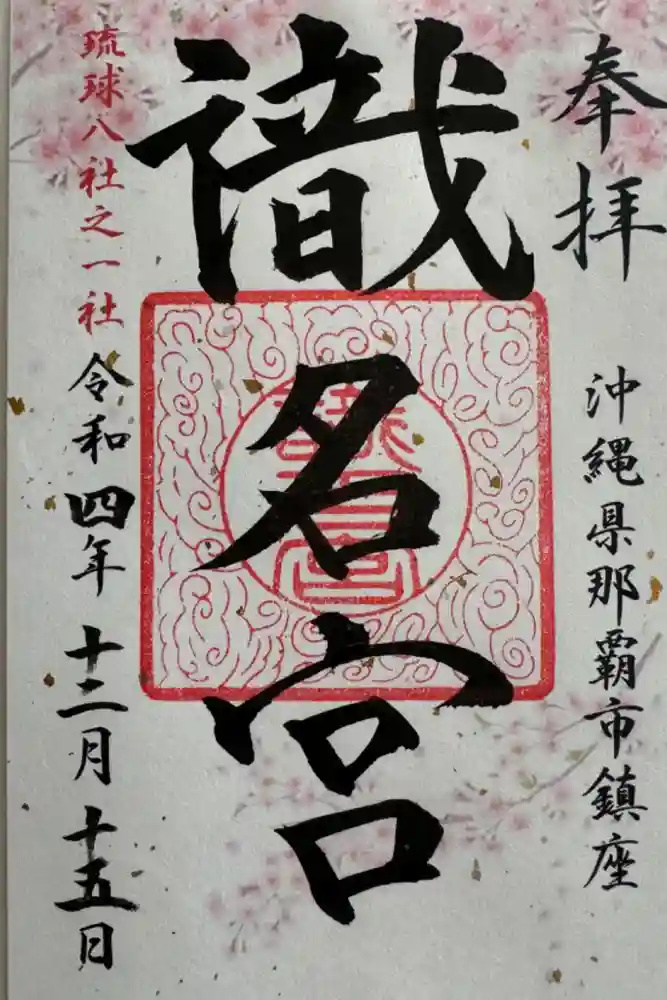 奉拝
沖縄県那覇市鎮座
識名宮
琉球八社之一社
令和四年十二月十五日